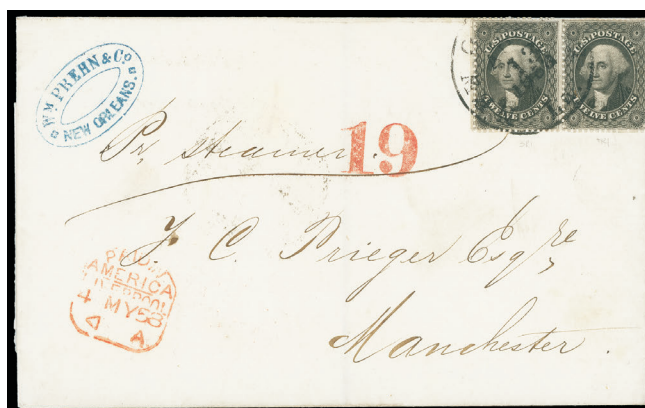 WM PREHN & Co
NEW ORLEANS.
U.S. POSTAGE
TWELVE CENTS
U.S. POSTAGE
TWELVE CENTS
Pr. steamer.
19
F. C. Prieger Esqre
Manchester.
PAID
AMERICA
LIVERPOOL
4 MY 58
A